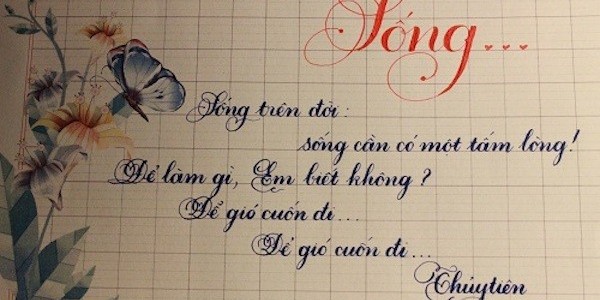 Sống...
Sống trên đời:
sống cần có một tấm lòng!
Để làm gì, Em biết không?
Để gió cuốn đi...
Để gió cuốn đi...
Thủy tiên